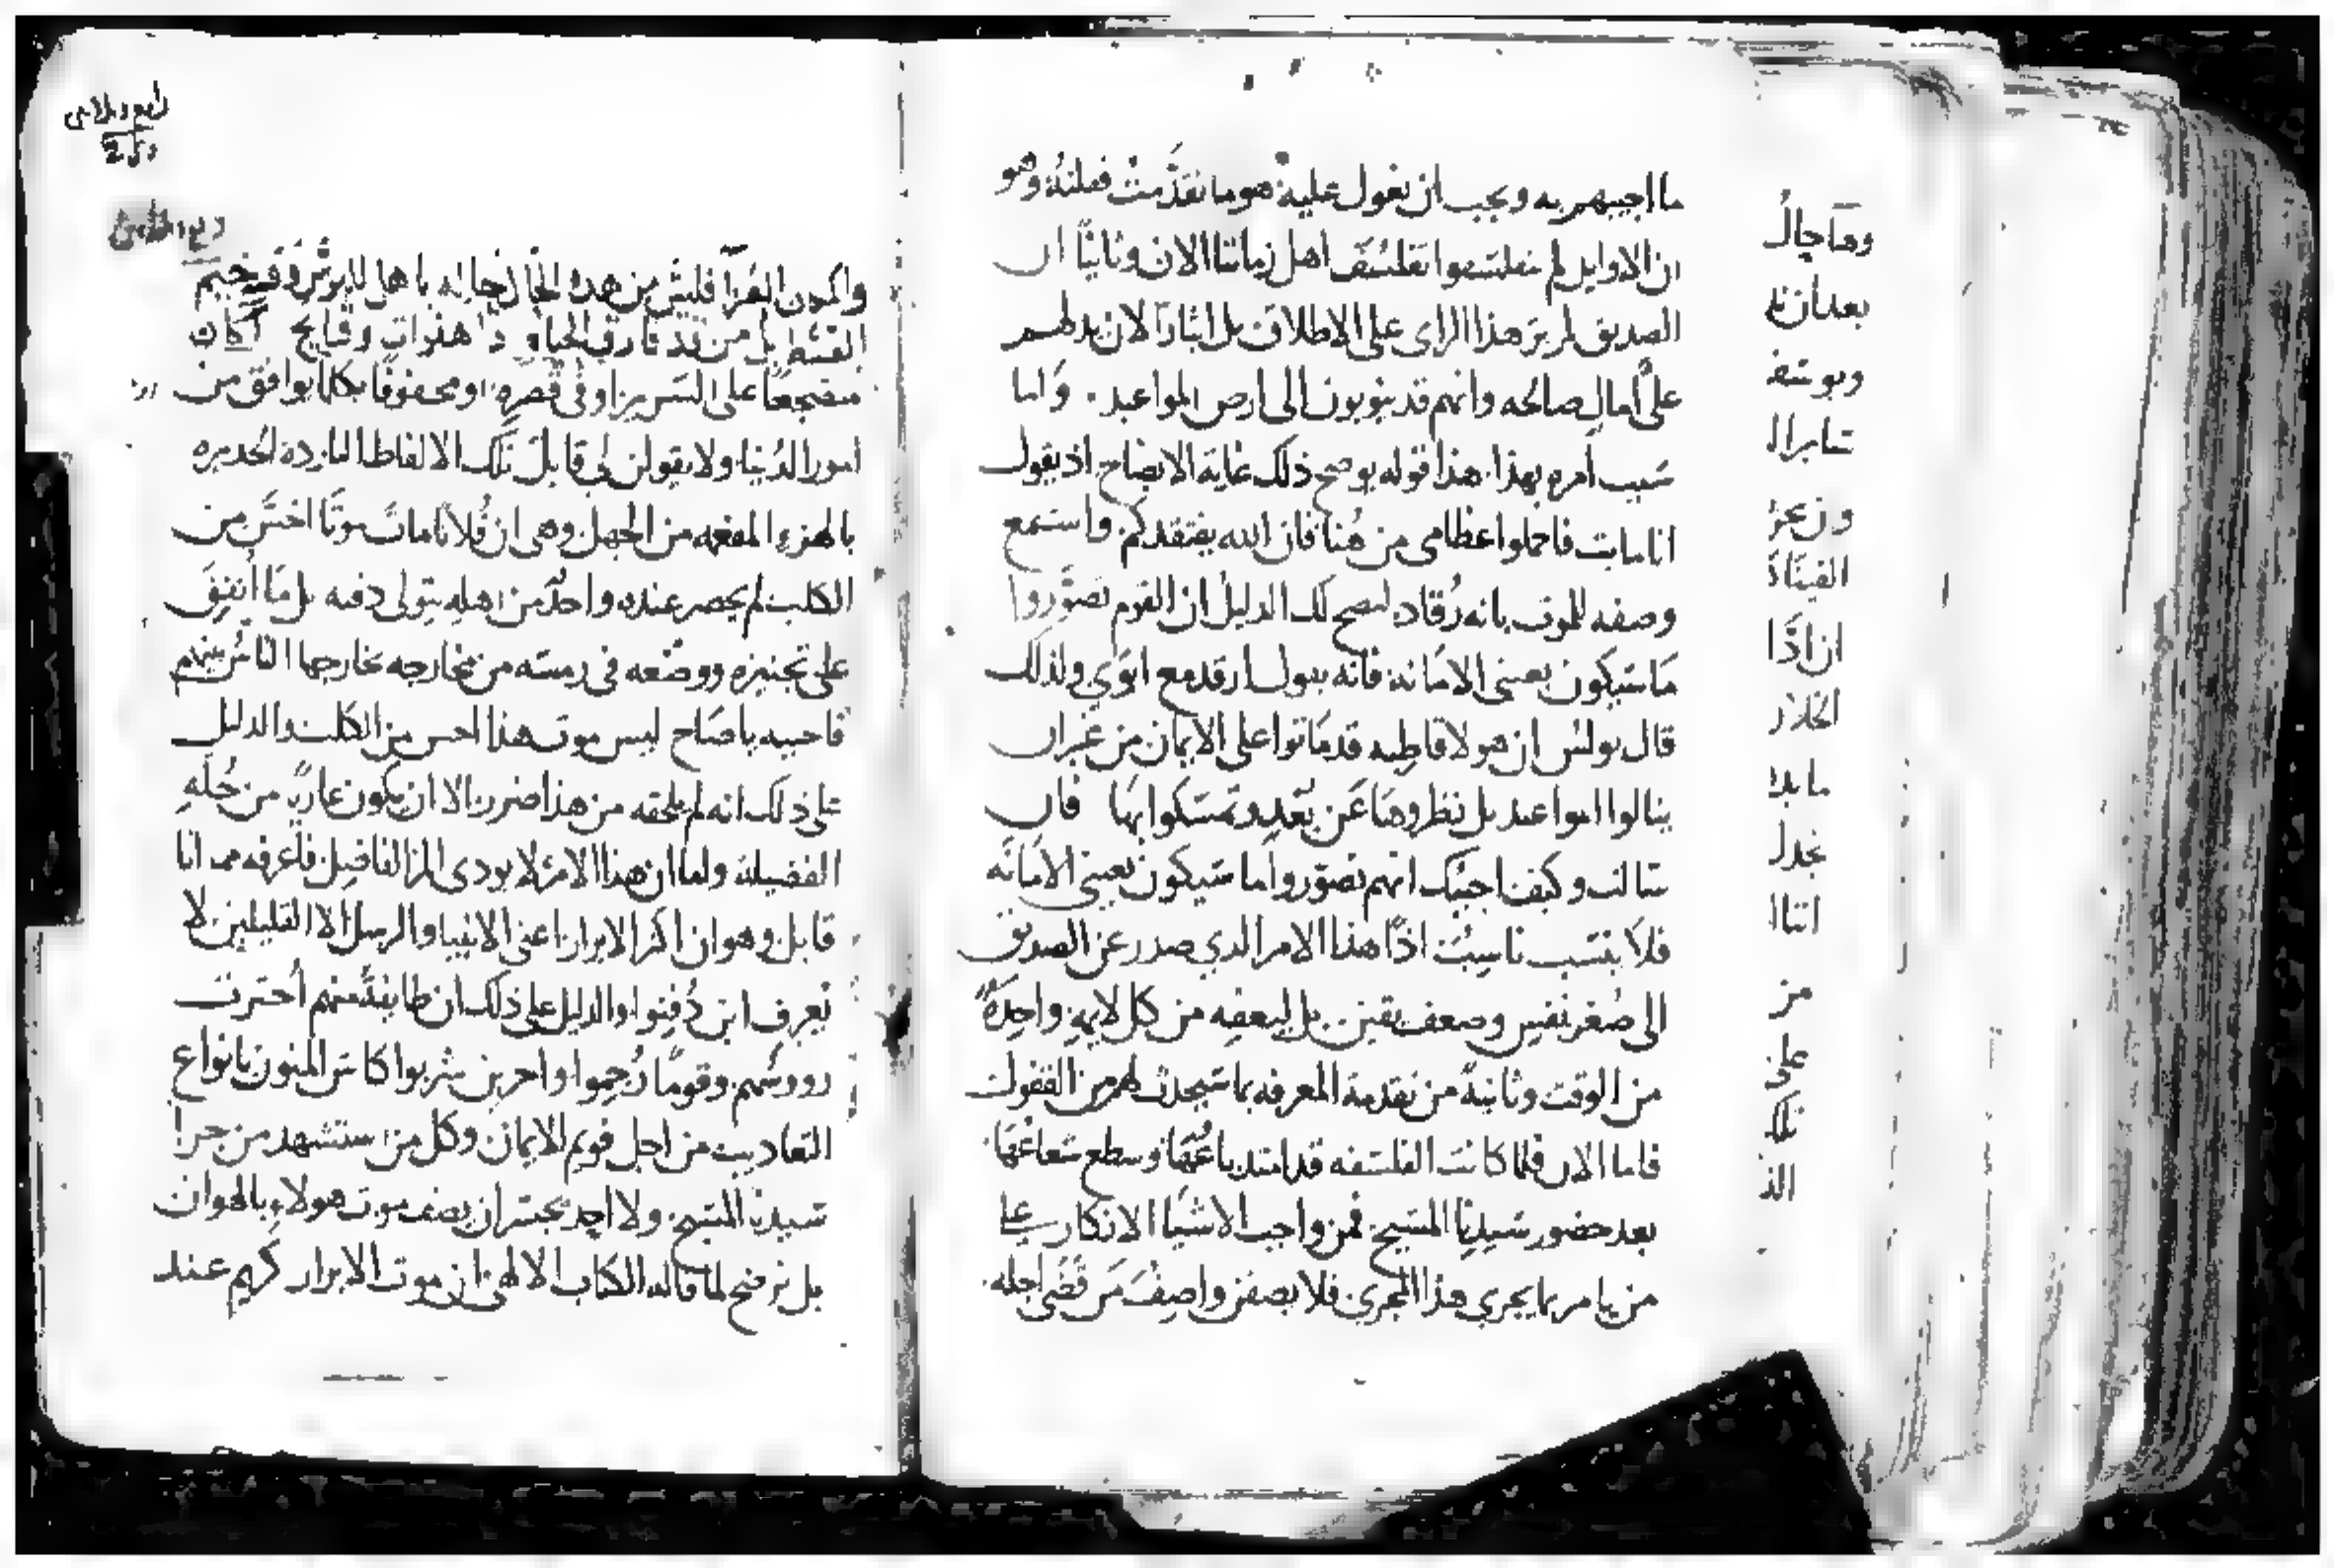 ما اجيبهم به ويجب ان نقول عليه هو ما تقدمت فقلته وهو
ان الاوايل لم يتفلسفوا تفلسف اهل زماننا الان وثانيا ان
الصديق لم ير هذا الراى على الاطلاق بل ايثارا لان يدلهم
على امال صالحه وانهم قد يثوبون الى ارض المواعيد . واما
سبب امره بهذا هذا قوله يوضح ذلك غاية الايضاح اذ يقول
انا مايت فاحملوا عظامى من هنا فان الله يفتقدكم واستمع
وصفه للموت بانه رقاد ليصح لك الدليل ان القوم تصوروا
ما سيكون بعينى الامانه فانه يقول ارقد مع ابوي ولذلك
قال بولس ان هولا قاطبه قد ماتوا على الايمان من غير ان
ينالوا المواعيد بل نظروها عن بعد وتمسكوا بها فان
سالت وكيف اجبتك انهم تصوروا ما سيكون بعيني الامانه
فلا ينسب ناسبٌ اذًا هذا الامر الدي صدر عن الصديق
الى صغر نفس وضعف يقين بل ليعفيه من كل لايمه واحدةً
من الوقت وثانيةً من تقدمة المعرفه بما سيحدث لهم من القفول
فاما الان فلما كانت الفلسفه قد امتد باعها وسطع شعاعها
بعد حضور سيدنا المسيح فمن واجب الاشيا الانكار على
من يامر بما يجري هذا المجرى فلا يصفن واصف من قضى اجله
وما جال
بعد ان
ان اذا
من
على
رابع وثلاثين
والمدن الغرآ فليس من هذه الحال حاله ياهل للبرش وقو
القسط بل من قد فارق الحياه دا هفوات وقبايح اكان
مضجعًا على السرير او فى قصره او محفوفًا بكلما يوافق من
امور الدنيا ولا يقولن لى قايل تلك الالفاظ البارده الجديره
بالهزء المفعمه من الجهل وهى ان فلانا مات موتا اخس من
الكلب لم يحضر عنده واحدٌ من اهله يتولى دفنه بل ما انفق
على تجنيزه ووضعه فى رمسه من مخارجه مخارجها الناس بينهم
فاجيبه يا صاح ليس موت هذا اخس من الكلب والدليل
على ذلك انه لم يلحقه من هذا ضرر الا ان يكون عاريً من حلة
الفضيله ولما ان هذا الامر لا يودى المر الفاضل فاعرفه مما انا
قايل وهو ان اكثر الابرار اعنى الانبيا والرسل الا القليلين لا
نعرف اين دُفنوا والدليل على ذلك ان طايفةً منهم احتزت
رووسهم وقومًا رُجموا واخرين شربوا كاس المنون بانواع
التعاديب من اجل قويم الايمان وكل من استشهد من جرا
سيدنا المسيح ولا احد يجسر ان يصف موت هولاء بالهوان
بل نوضح لما قاله الكتاب الالهى ان موت الابرار كريم عند